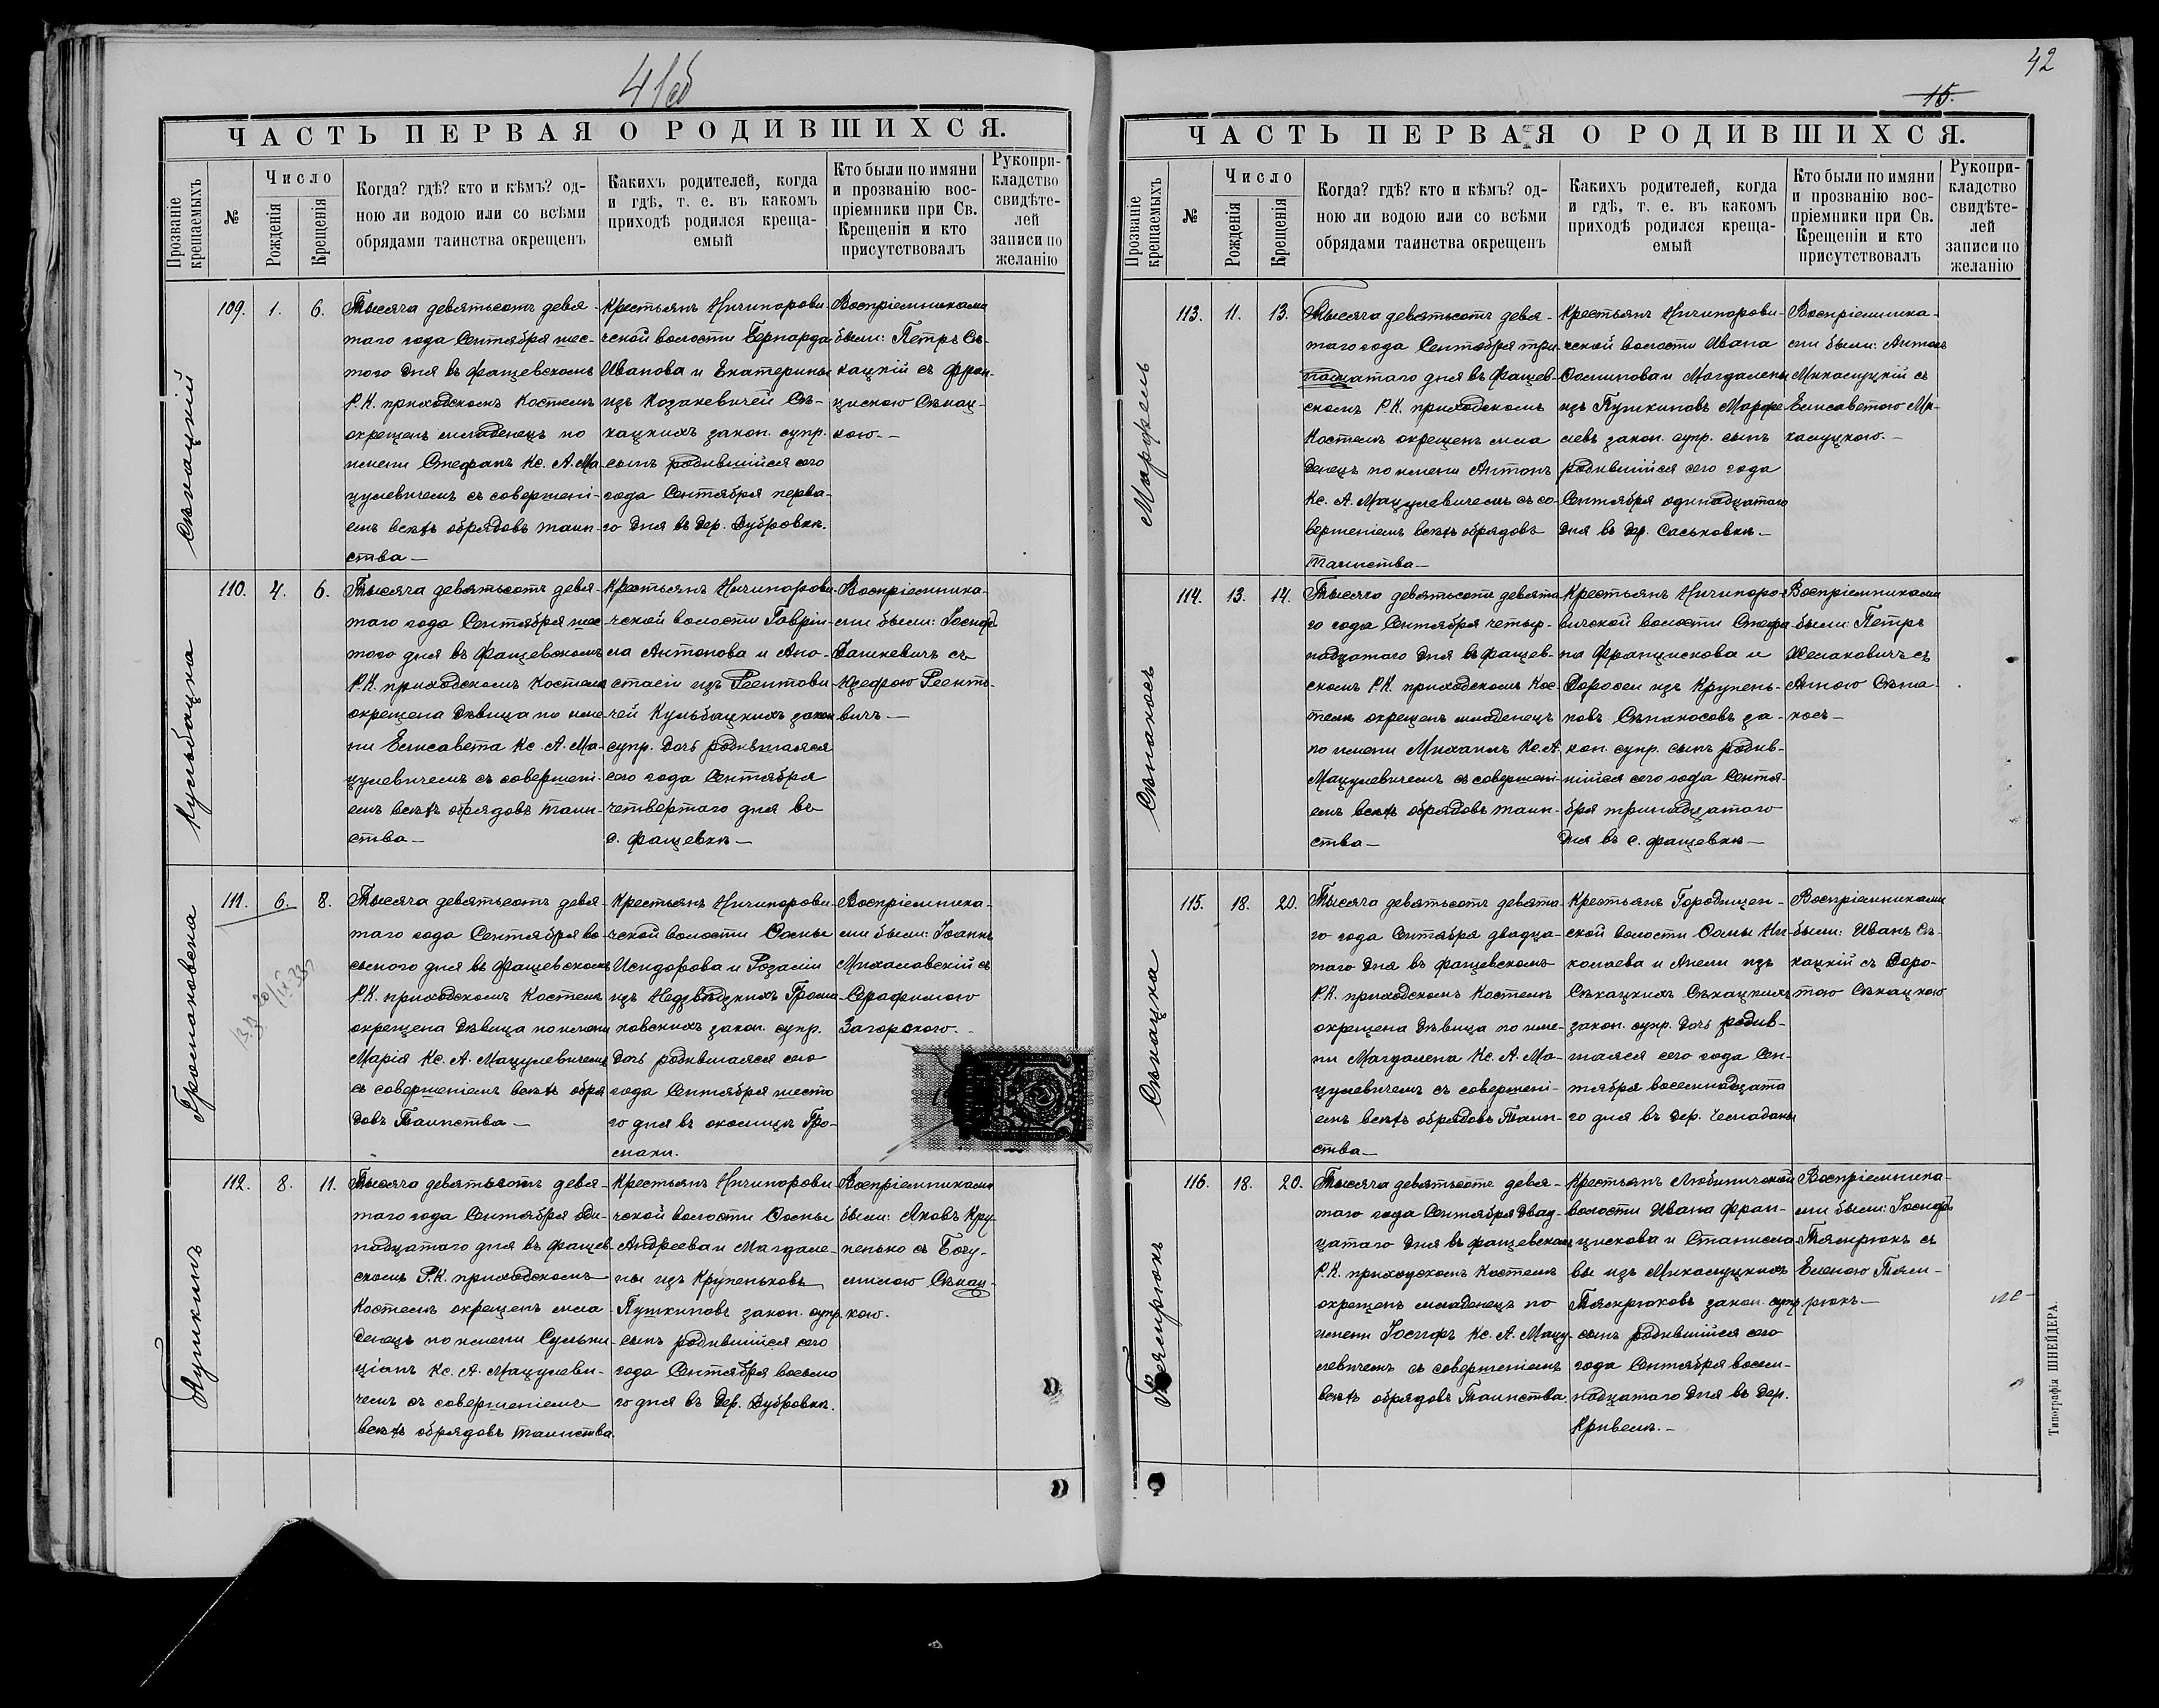 41об
ЧАСТЬ ПЕРВАЯ О РОДИВШИХСЯ.
Прозваніе крещаемыхъ
№
Число
Рожденія
Крещенія
Когда? гдѣ? кто и кѣмъ? од-
ною ли водою или со всѣми
обрядами таинства окрещенъ
Какихъ родителей, когда
и гдѣ, т. е. въ какомъ
приходѣ родился креща-
емый
Кто были по имяни
и прозванію вос-
пріемники при Св.
Крещеніи и кто
присутствовалъ
Рукопри-
кладство
свидѣте-
лей
записи по
желанію
Сѣкацкій
109.
1.
6.
Тысяча девятьсотъ девя-
таго года Сентября шес-
того дня въ Фащевскомъ
Р.К. приходскомъ Костелѣ
окрещенъ младенецъ по
имени Стефанъ Кс. А. Ма-
цулевичемъ съ совершені-
емъ всѣхъ обрядовъ таин-
ства—
Крестьянъ Ничипорови-
чской волости Бернарда
Иванова и Екатерины
изъ Козакевичей Сѣ-
кацкихъ закон. супр.
сынъ родившійся сего
года Сентября перва-
го дня въ дер. Дубровкѣ.
Воспріемниками
были: Петръ Сѣ-
кацкій съ Фран-
цискою Сѣкац-
кою.—
Кульбацка
110.
4.
6.
Тысяча девятьсотъ девя-
таго года Сентября шес
того дня въ Фащевскомъ
Р.К. приходскомъ Костелѣ
окрещена дѣвица по име-
ни Елисавета Кс. А. Ма-
цулевичемъ съ совершені-
емъ всѣхъ обрядовъ таин-
ства—
Крестьянъ Ничипорови-
чской волости Гавріи-
ла Антонова и Ана-
стасіи изъ Реентови-
чей Кульбацкихъ закон
супр. дочь родившаяся
сего года Сентября
четвертаго дня въ
с. Фащевкѣ—
Воспріемника-
ми были: Іосифъ
Дашкевичъ съ
Юзефою Реенто-
вичъ—
Громаковска
111.
6.
8.
Тысяча девятьсотъ девя-
таго года Сентября во-
сьмого дня въ Фащевскомъ
Р.К. приходскомъ Костелѣ
окрещена дѣвица по имени
Марія Кс. А. Мацулевичемъ
съ совершеніемъ всѣхъ обря
довъ Таинства—
Крестьянъ Ничипорови-
чской волости Осипы
Исидорова и Розаліи
изъ Недзвѣдзкихъ Грома-
ковскихъ закон. супр.
дочь родившаяся сего
года Сентября шесто
го дня въ околицѣ Гро-
маки.
Воспріемника-
ми были: Іоаннъ
Михаловскій съ
Серафимою
Загорскою.—
Пушкинъ
112.
8.
11.
Тысяча девятьсотъ девя-
таго года Сентября оди-
надцатаго дня въ Фащев-
скомъ Р.К. приходскомъ
Костелѣ окрещенъ мла
денецъ по имени Сульпи-
ціанъ Кс. А. Мацулеви-
чемъ съ совершеніемъ
всѣхъ обрядовъ таинства.
Крестьянъ Ничипорови-
чской волости Осипы
Андреева и Магдале-
ны изъ Крупеньковъ
Пушкиновъ закон. супр.
сынъ родившійся сего
года Сентября восьмо
го дня въ дер. Дубровкѣ.
Воспріемниками
были: Яковъ Кру-
пенько съ Богу-
милою Сѣкац-
кою.
42
15.
ЧАСТЬ ПЕРВАЯ О РОДИВШИХСЯ.
Прозваніе крещаемыхъ
№
Число
Рожденія
Крещенія
Когда? гдѣ? кто и кѣмъ? од-
ною ли водою или со всѣми
обрядами таинства окрещенъ
Какихъ родителей, когда
и гдѣ, т. е. въ какомъ
приходѣ родился креща-
емый
Кто были по имяни
и прозванію вос-
пріемники при Св.
Крещеніи и кто
присутствовалъ
Рукопри-
кладство
свидѣте-
лей
записи по
желанію
Марфель
113.
11.
13.
Тысяча девятьсотъ девя-
таго года Сентября три-
надцатаго дня въ Фащев-
скомъ Р.К. приходскомъ
Костелѣ окрещенъ мла
денецъ по имени Антонъ
Кс. А. Мацулевичемъ съ со-
вершеніемъ всѣхъ обрядовъ
таинства—
Крестьянъ Ничипорови-
чской волости Ивана
Осипова и Магдалены
изъ Пушкиновъ Марфе
левъ закон. супр. сынъ
родившійся сего года
Сентября одинадцатаго
дня въ дер. Саськовкѣ.—
Воспріемника-
ми были: Антонъ
Микалуцкій съ
Елисаветою Ми-
калуцкою.—
Сѣнакосъ
114.
13.
14.
Тысяча девятьсотъ девята
го года Сентября четыр-
надцатаго дня въ Фащев-
скомъ Р.К. приходскомъ Кос-
телѣ окрещенъ младенецъ
по имени Михаилъ Кс. А.
Мацулевичемъ съ совершені-
емъ всѣхъ обрядовъ таин-
ства—
Крестьянъ Ничипоро-
вичской волости Стефа-
на Францискова и
Доросеи изъ Крупень-
ковъ Сѣнакосовъ за-
кон. супр. сынъ родив-
шійся сего года Сентя-
бря тринадцатаго
дня въ с. Фащевкѣ—
Воспріемниками
были: Петръ
Жемаковичъ съ
Анною Сѣна-
косъ—
Сѣкацка
115.
18.
20.
Тысяча девятьсотъ девята-
го года Сентября двадца-
таго дня въ Фащевскомъ
Р.К. приходскомъ Костелѣ
окрещена дѣвица по име-
ни Магдалена Кс. А. Ма-
цулевичемъ съ совершені-
емъ всѣхъ обрядовъ Таин-
ства—
Крестьянъ Городищен-
ской волости Осипы Ни-
колаева и Анели изъ
Сѣкацкихъ Сѣкацкихъ
закон. супр. дочь родив-
шаяся сего года Сен-
тября восемнадцата
го дня въ дер. Чемаданы
Воспріемниками
были: Иванъ Сѣ-
кацкій съ Доро-
тою Сѣкацкою
Тямрюкъ
116.
18.
20.
Тысяча девятьсотъ девя-
таго года Сентября двад-
цатаго дня въ Фащевскомъ
Р.К. приходскомъ Костелѣ
окрещенъ младенецъ по
имени Іосифъ Кс. А. Мацу-
левичемъ съ совершеніемъ
всѣхъ обрядовъ Таинства.
Крестьянъ Любиничской
волости Ивана Фран-
цискова и Станисла-
вы изъ Микалуцкихъ
Тямрюковъ закон. супр
сынъ родившійся сего
года Сентября восем-
надцатаго дня въ дер.
Кривель.—
Воспріемника-
ми были: Іосифъ
Тямрюкъ съ
Еленою Тям-
рюкъ—
Типографія ШНЕЙДЕРА.